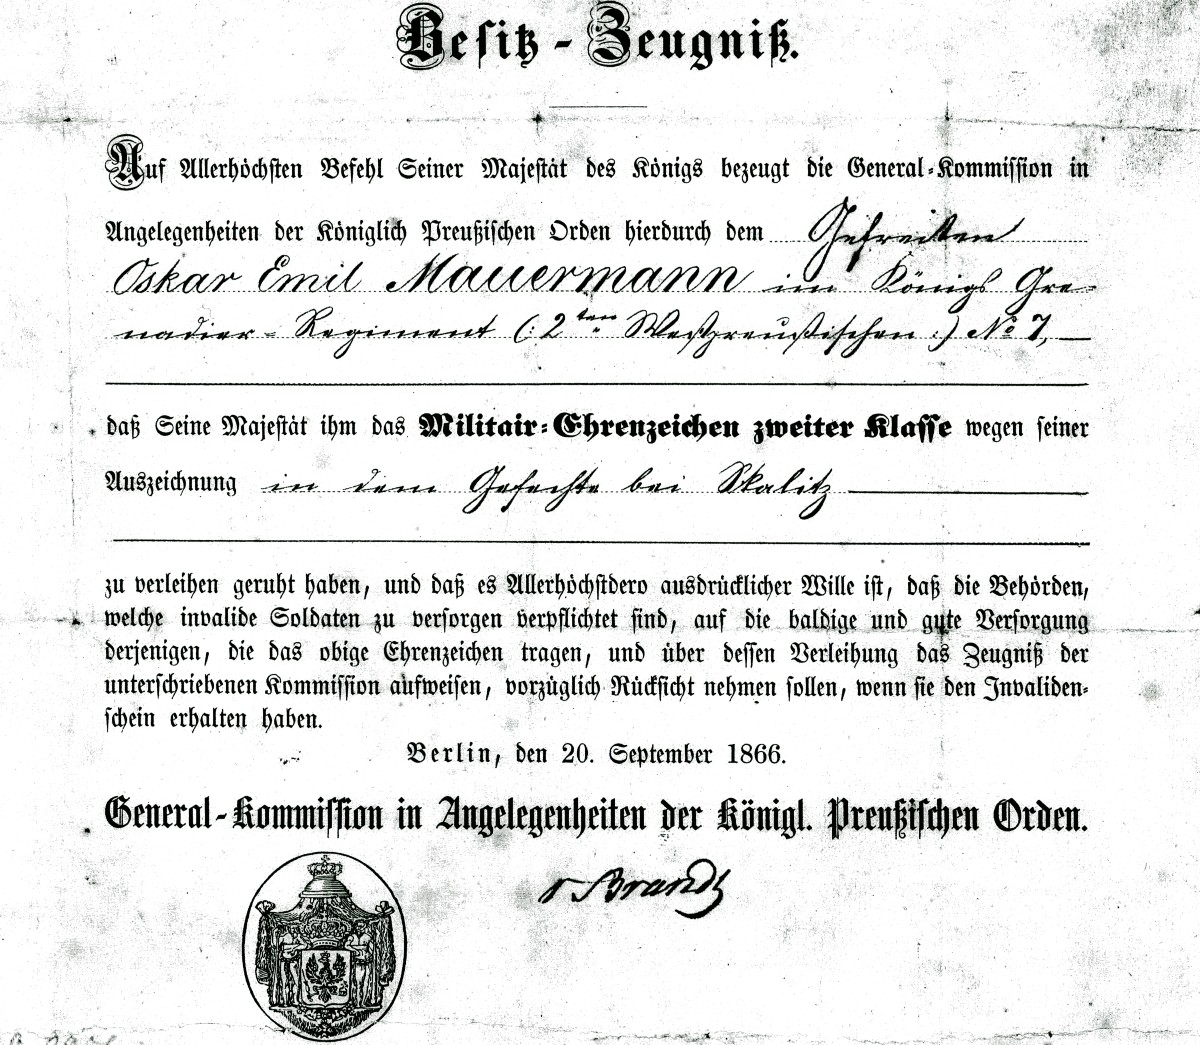 Besitz-Zeugniß.
Auf Allerhöchsten Befehl Seiner Majestät des Königs bezeugt die General-Kommission in
Angelegenheiten der Königlich Preußischen Orden hierdurch dem Gefreiten
Oskar Emil Mauermann im Königs Gre-
nadier-Regiment (: 2ten Westpreußischen :) No 7,
daß Seine Majestät ihm das Militair-Ehrenzeichen zweiter Klasse wegen seiner
Auszeichnung in dem Gefechte bei Skalitz
zu verleihen geruht haben, und daß es Allerhöchstdero ausdrücklicher Wille ist, daß die Behörden,
welche invalide Soldaten zu versorgen verpflichtet sind, auf die baldige und gute Versorgung
derjenigen, die das obige Ehrenzeichen tragen, und über dessen Verleihung das Zeugniß der
unterschriebenen Kommission aufweisen, vorzüglich Rücksicht nehmen sollen, wenn sie den Invaliden-
schein erhalten haben.
Berlin, den 20. September 1866.
General-Kommission in Angelegenheiten der Königl. Preußischen Orden.
v Brandt